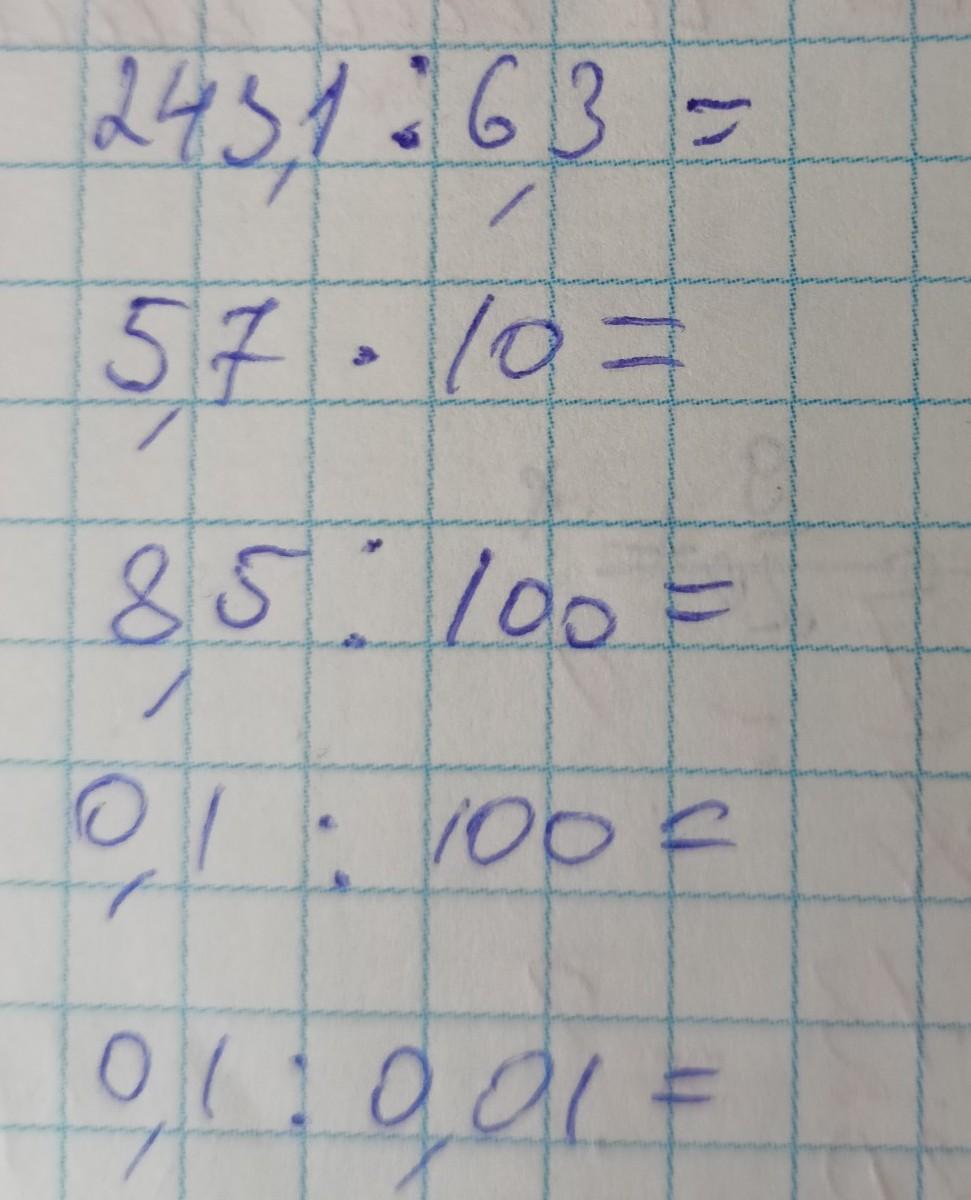 243,1 : 6,3 =
5,7 · 10 =
8,5 : 100 =
0,1 : 100 =
0,1 : 0,01 =